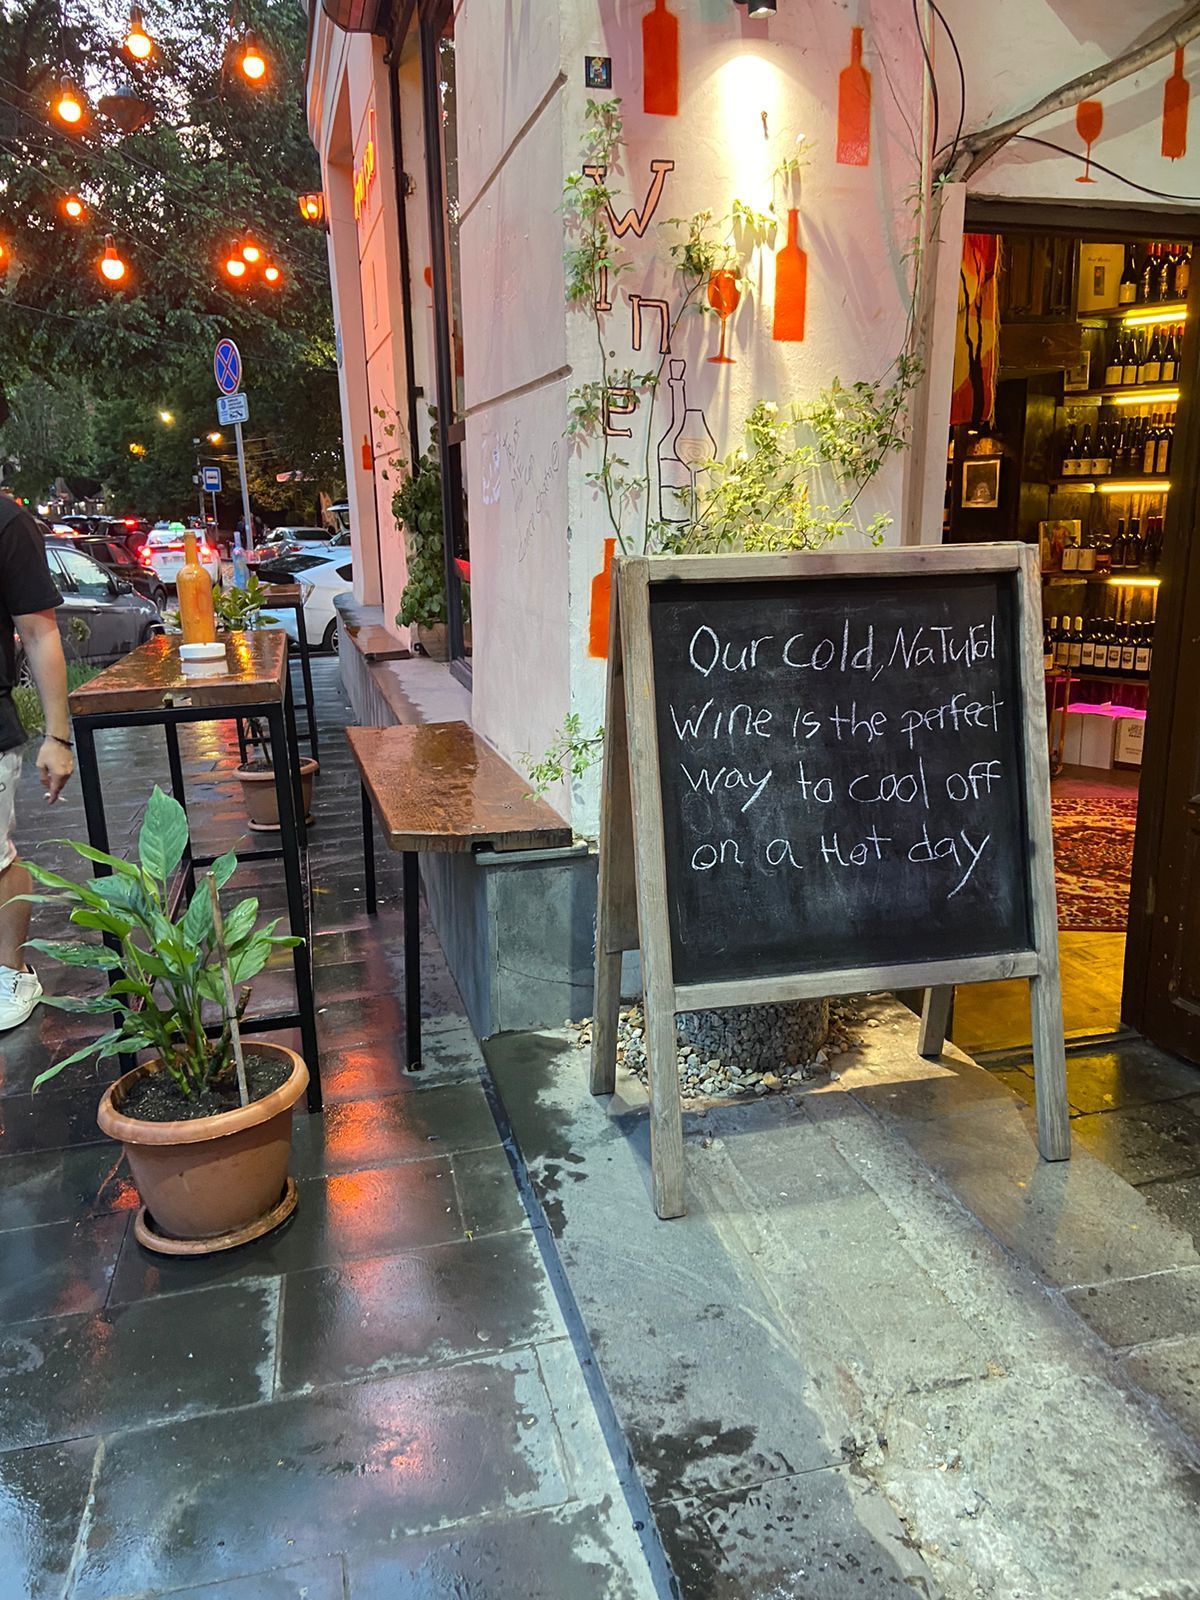 wine
Our cold, Natural
Wine is the perfect
way to cool off
on a Hot day